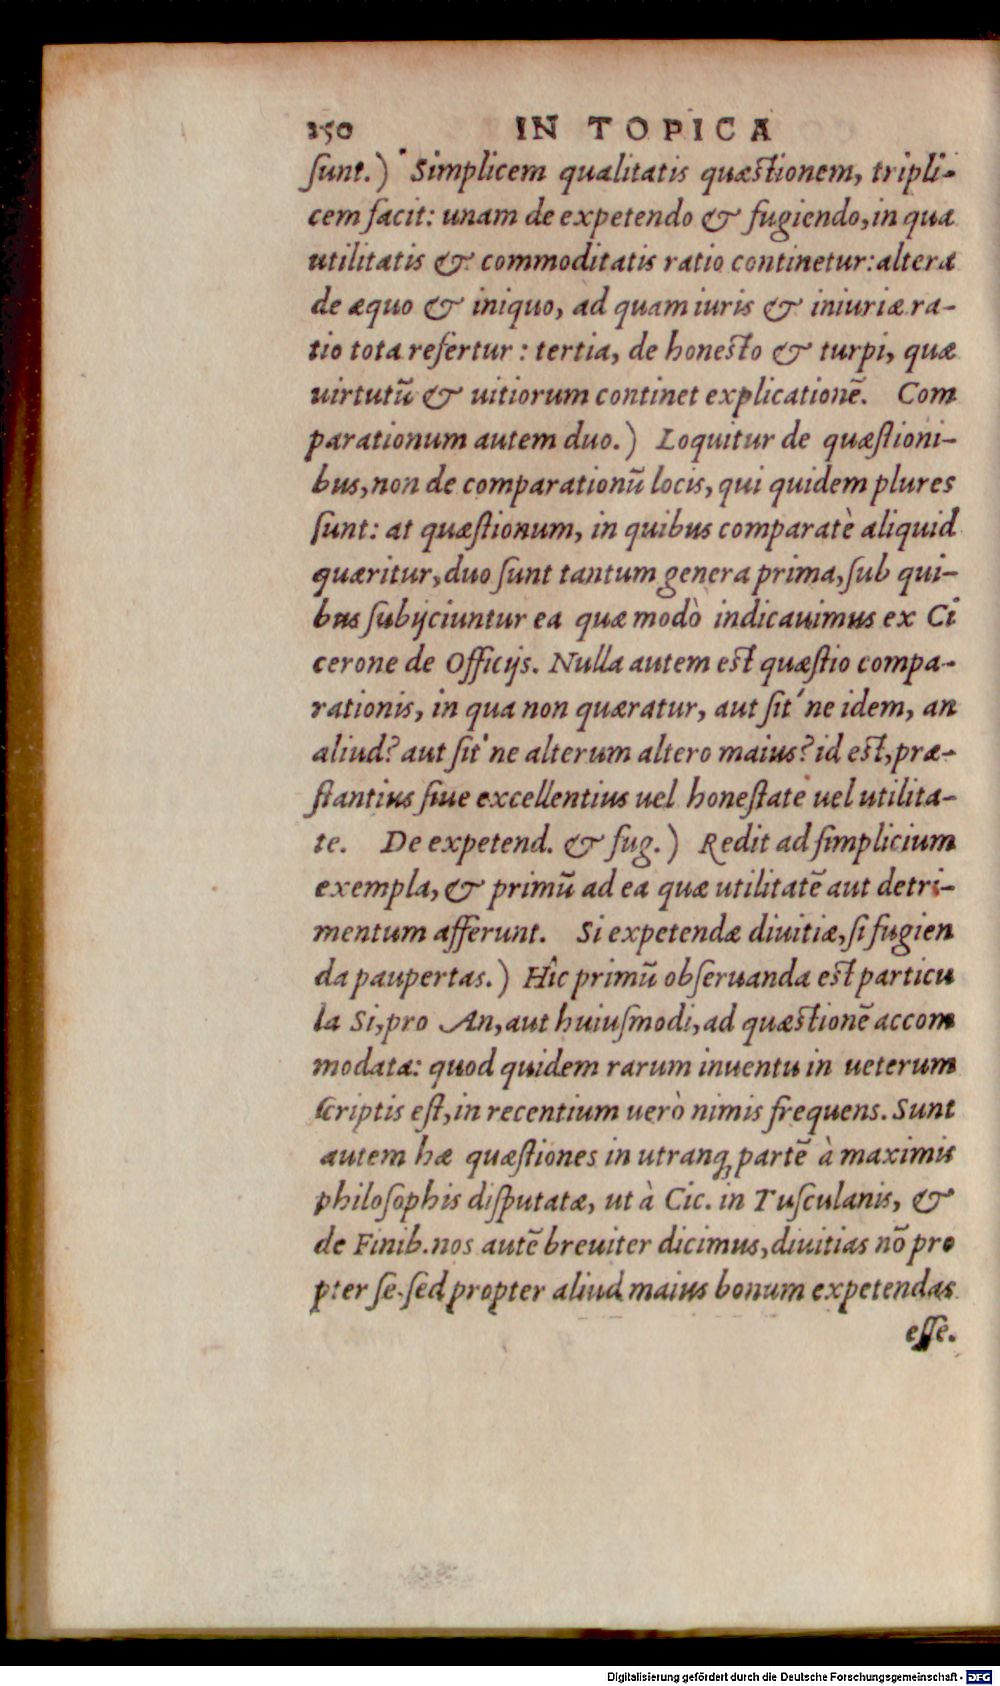 250 IN TOPICA
sunt.) Simplicem qualitatis quæstionem, tripli-
cem facit: unam de expetendo & fugiendo, in qua
utilitatis & commoditatis ratio continetur: altera
de æquo & iniquo, ad quam iuris & iniuriæ ra-
tio tota refertur: tertia, de honesto & turpi, quæ
uirtutũ & uitiorum continet explicationẽ. Com
parationum autem duo.) Loquitur de quæstioni-
bus, non de comparationũ locis, qui quidem plures
sunt: at quæstionum, in quibus comparatè aliquid
quæritur, duo sunt tantum genera prima, sub qui-
bus subijciuntur ea quæ modò indicauimus ex Ci
cerone de Officijs. Nulla autem est quæstio compa-
rationis, in qua non quæratur, aut sit'ne idem, an
aliud? aut sit'ne alterum altero maius? id est, præ-
stantius siue excellentius uel honestate uel utilita-
te. De expetend. & fug.) Redit ad simplicium
exempla, & primũ ad ea quæ utilitatẽ aut detri-
mentum afferunt. Si expetendæ diuitiæ, si fugien
da paupertas.) Hîc primũ obseruanda est particu
la Si, pro An, aut huiusmodi, ad quæstionẽ accom
modata: quod quidem rarum inuentu in ueterum
scriptis est, in recentium uerò nimis frequens. Sunt
autem hæ quæstiones in utranq; partẽ à maximis
philosophis disputatæ, ut à Cic. in Tusculanis, &
de Finib. nos autẽ breuiter dicimus, diuitias nõ pro
pter se. sed propter aliud maius bonum expetendas
esse.
Digitalisierung gefördert durch die Deutsche Forschungsgemeinschaft - DFG